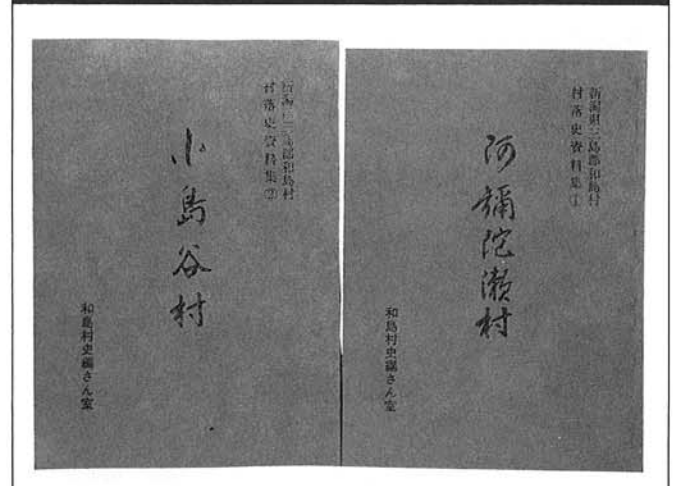 新潟県三島郡和島村
村落史資料集①
阿彌陀瀬村
和島村史編さん室
新潟県三島郡和島村
村落史資料集②
小島谷村
和島村史編さん室